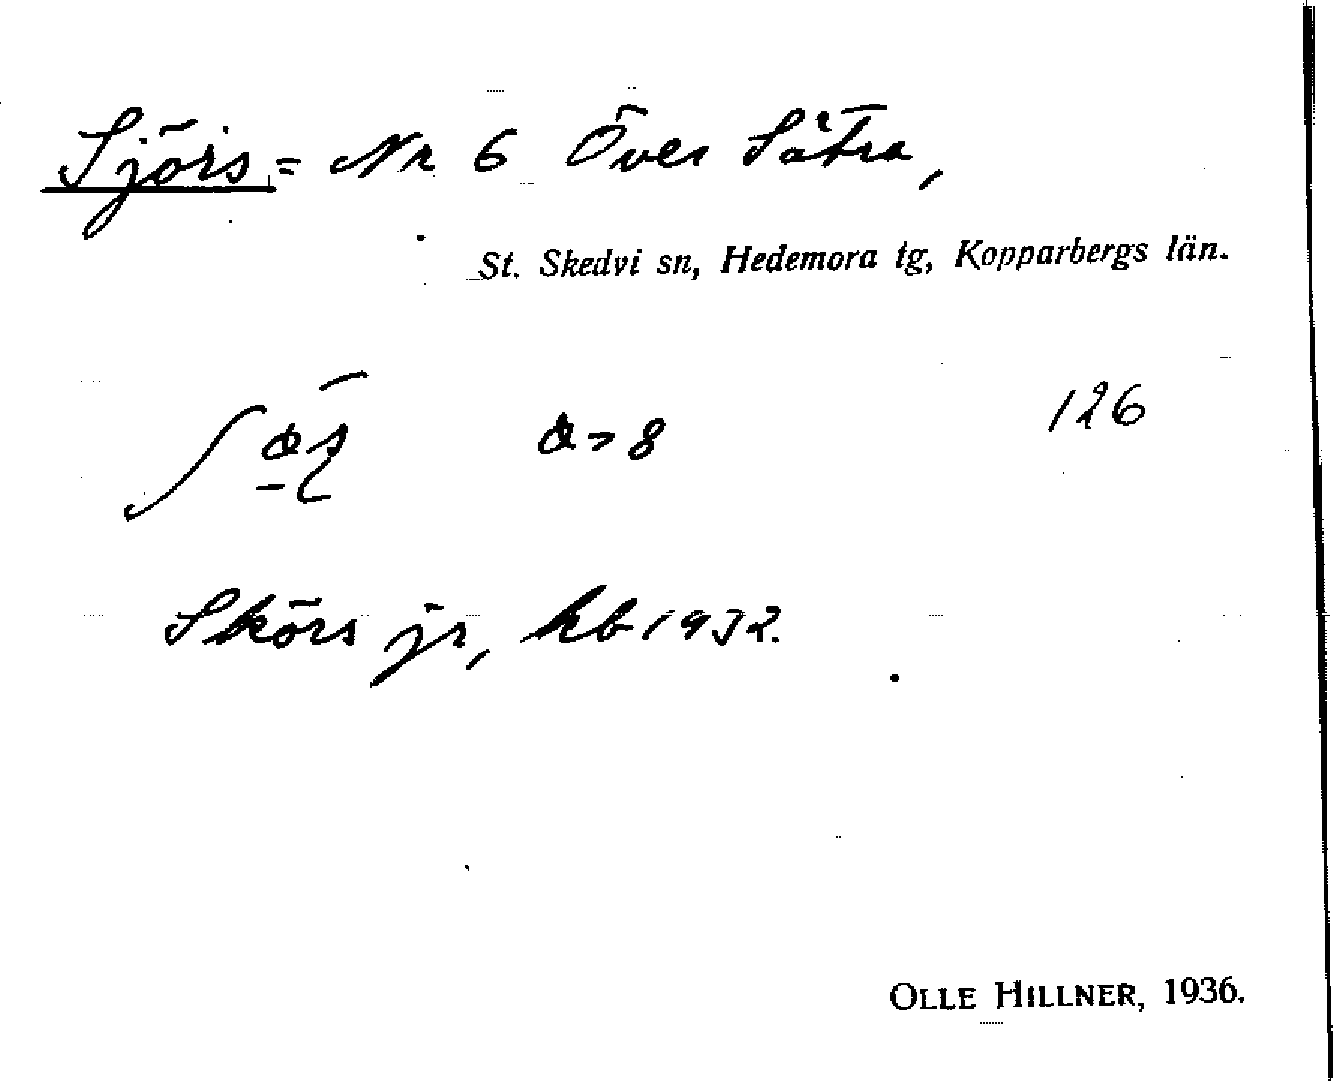 Sjörs = Nr 6 Över Sätra,
St. Skedvi sn, Hedemora tg, Kopparbergs län.
126
Skörs jr, kb 1932.
OLLE HILLNER, 1936.